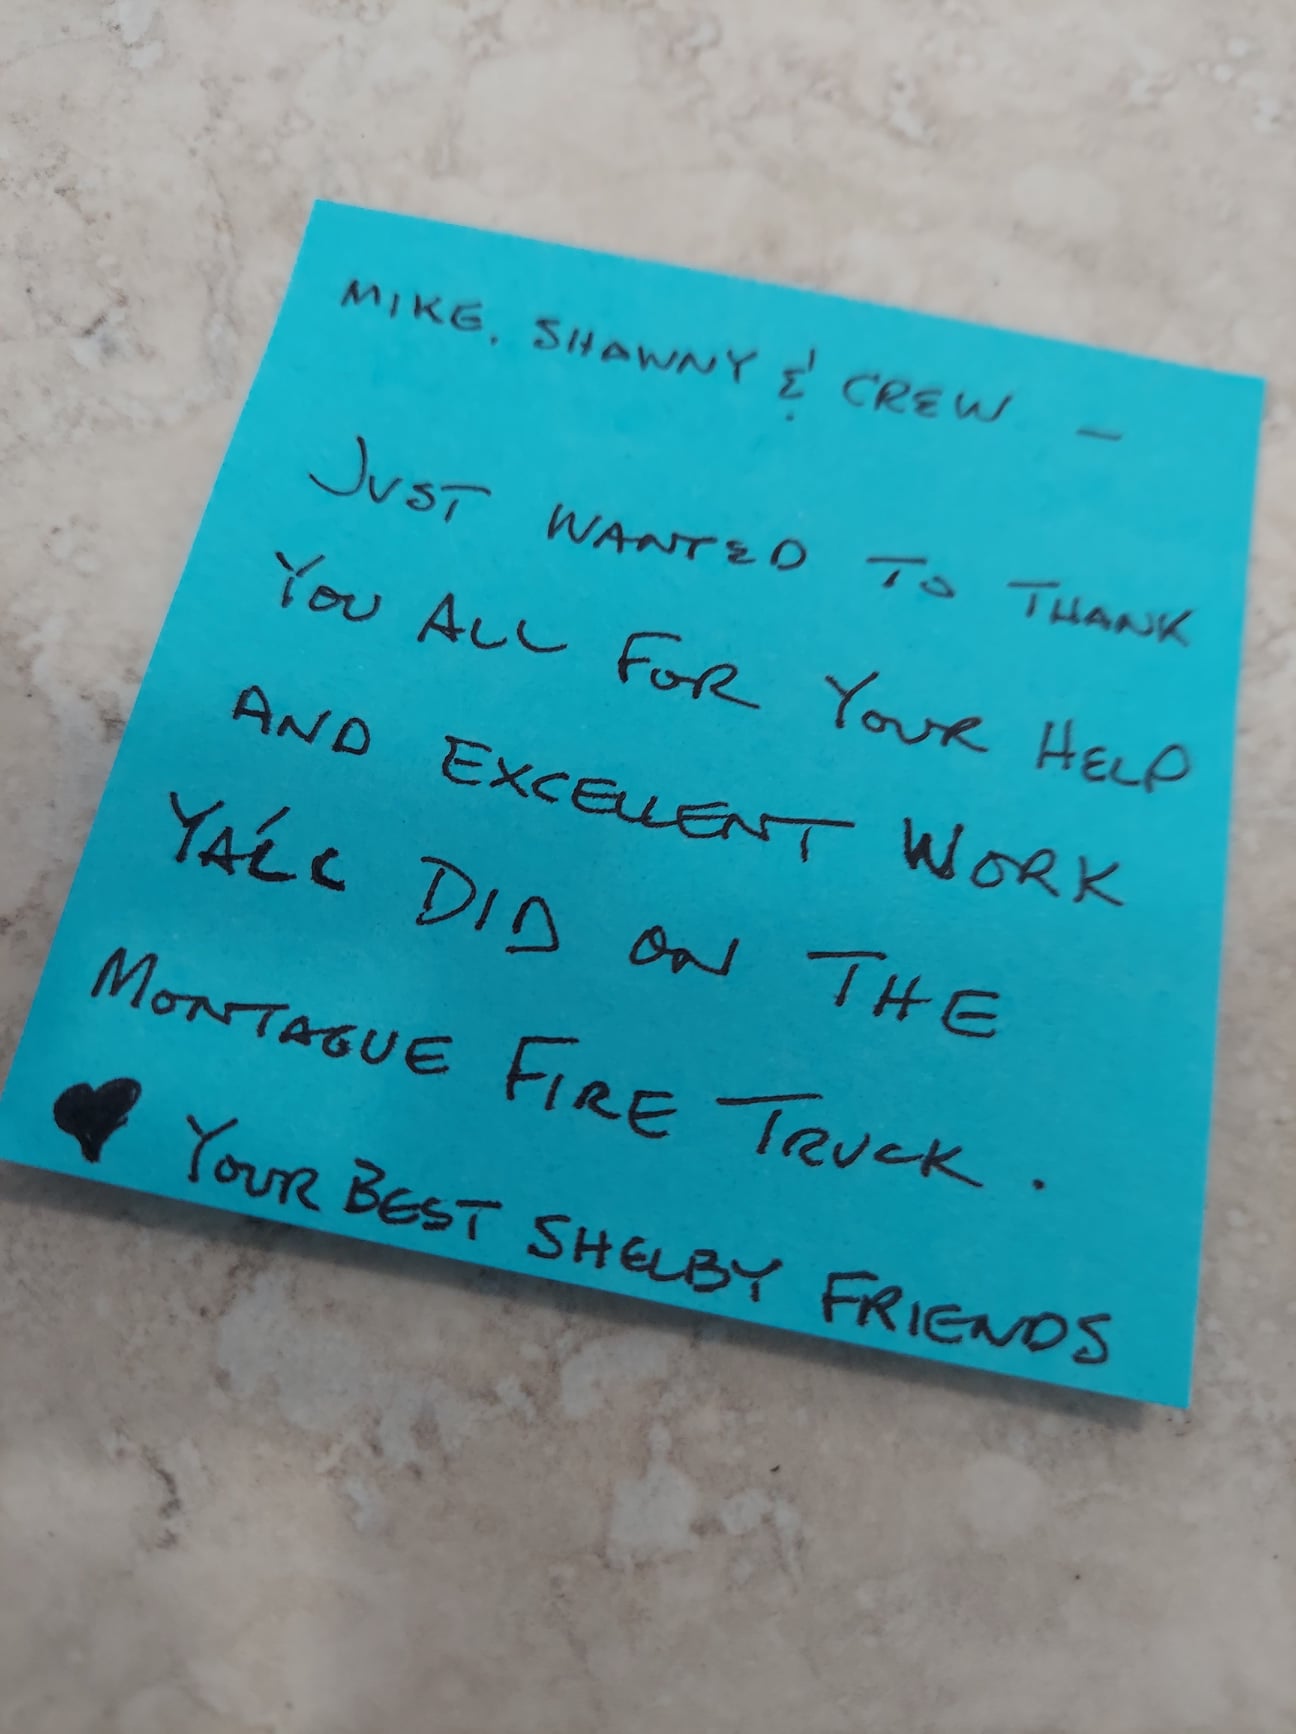 MIKE, SHAWNY & CREW –
JUST WANTED TO THANK
YOU ALL FOR YOUR HELP
AND EXCELLENT WORK
YA'LL DID ON THE
MONTAGUE FIRE TRUCK.
♥ YOUR BEST SHELBY FRIENDS